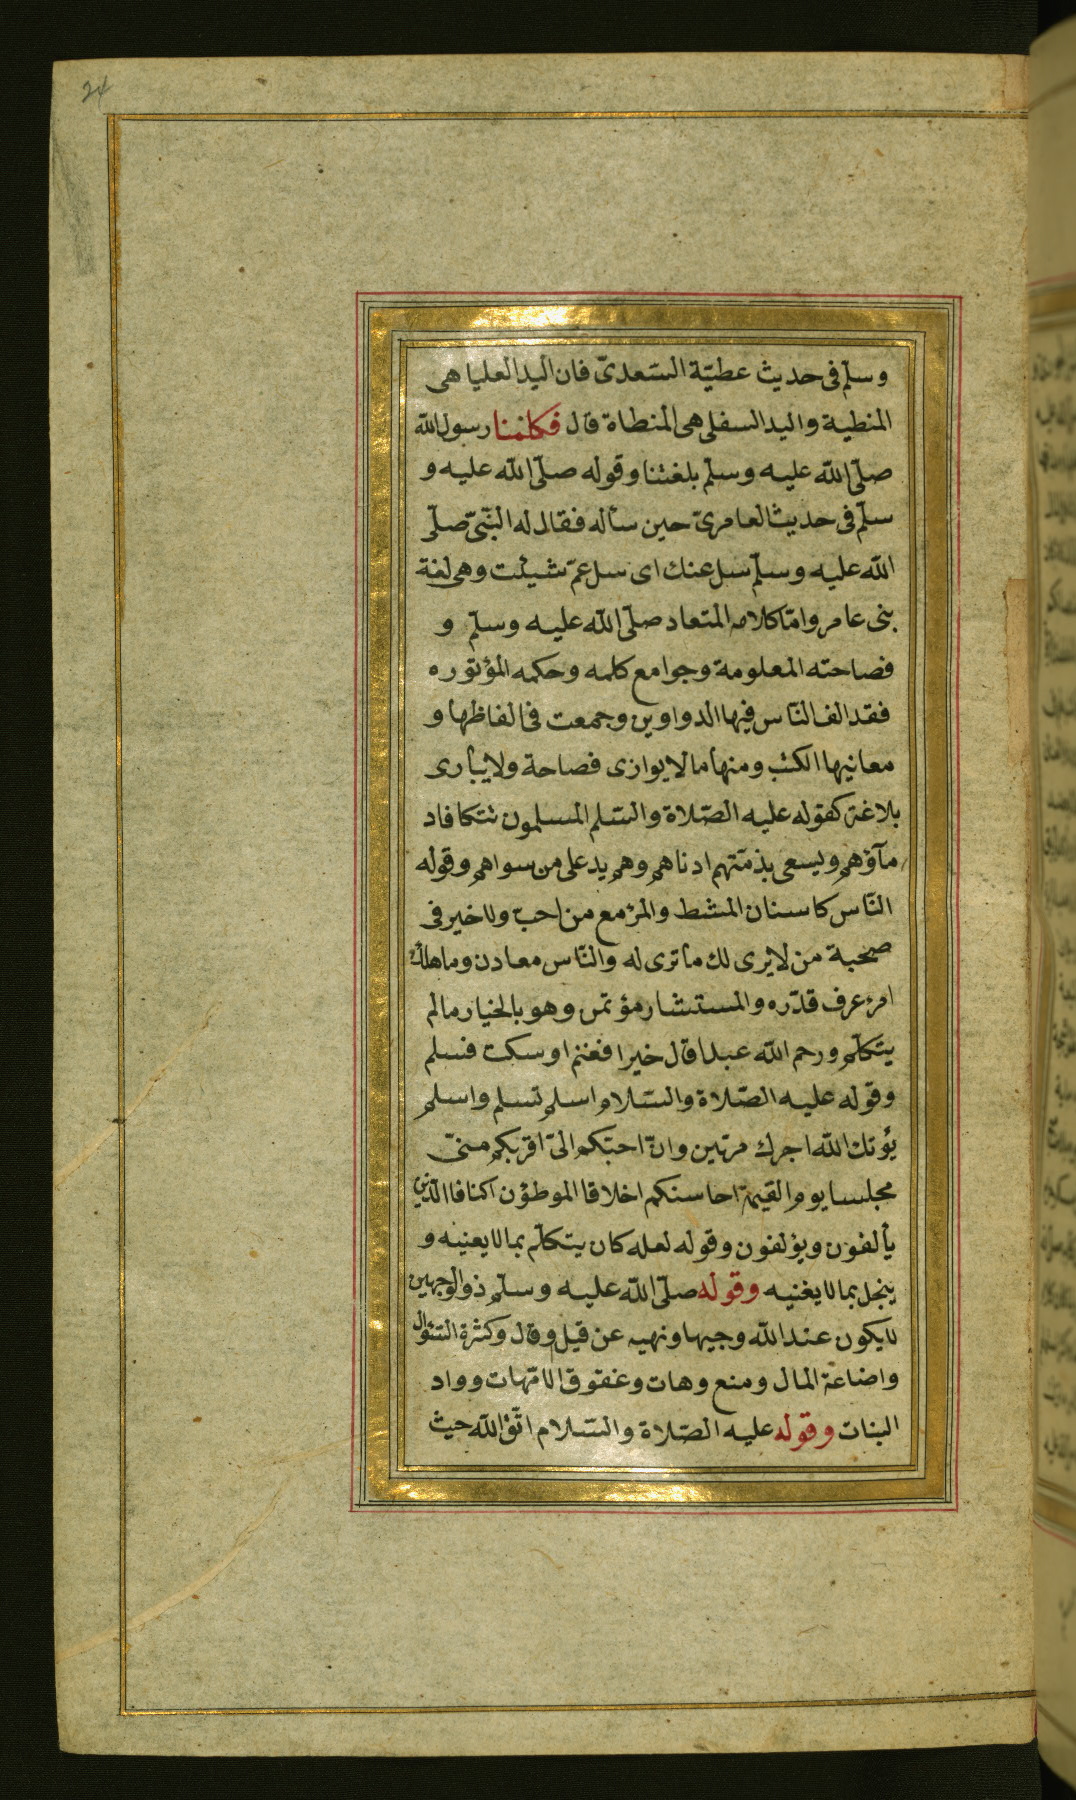 24
وسلّم فى حديث عطيّة السّعدىّ فان اليد العليا هى
المنطية واليد السفلى هى المنطاة قال فكلمنا رسول الله
صلّى الله عليه وسلّم بلغتنا وقوله صلّى الله عليه و
سلّم فى حديث العامرىّ حين سأله فقال له النّبىّ صلّى
الله عليه وسلّم سل عنك اى سل عمّ شيئت وهى لغة
بنى عامر وامّا كلامه المتعاد صلّى الله عليه وسلّم و
فصاحته المعلومة وجوامع كلمه وحكمه المؤتوره
فقد الف النّاس فيها الدواوين وجمعت فى الفاظها و
معانيها الكتب ومنها ما لا يوازى فصاحة ولا يبارى
بلاغة كقوله عليه الصّلاة والسّلم المسلمون تتكافاد
مآؤهم ويسعى بذمّتهم ادناهم وهم يد على من سواهم وقوله
النّاس كاسنان المشط والمرء مع من احبّ ولا خير فى
صحبة من لا يرى لك ما ترى له والنّاس معادن وما هلك
امرء عرف قدّره والمستشار مؤتمن وهو بالخيار ما لم
يتكلّم ورحم الله عبدا قال خيرا فغنم او سكت فسلم
وقوله عليه الصّلاة والسّلام اسلم تسلم واسلم
يؤتك الله اجرك مرتين وانّ احبّكم الىّ اقربكم منىّ
مجلسا يوم القيمة احاسنكم اخلاقا الموطؤن اكنافا الّذين
يألفون ويؤلفون وقوله لعله كان يتكلّم بما لا يعنيه و
يبخل بما لا يغنيه وقوله صلّى الله عليه وسلّم ذو الوجهين
لا يكون عند الله وجيها ونهيه عن قيل وقال وكثرة السّؤال
واضاعة المال ومنع وهات وعقوق الامّهات وواد
البنات وقوله عليه الصّلاة والسّلام اتّق الله حيث